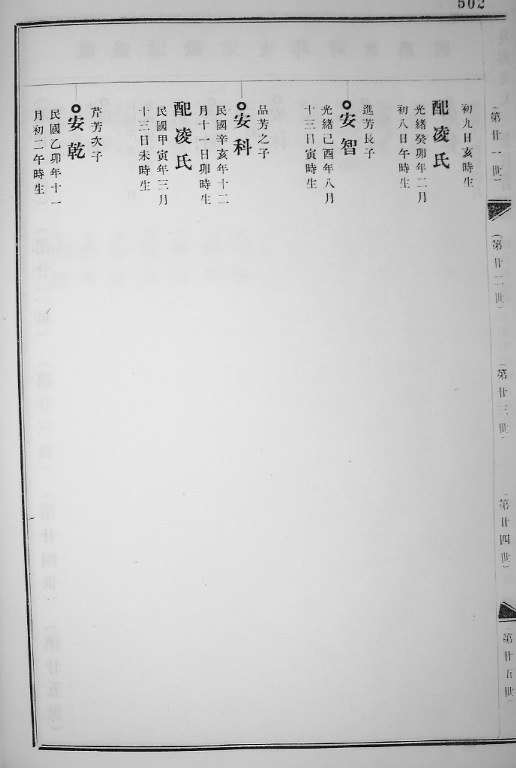 502
（第廿一世）
（第廿二世）
（第廿三世）
（第廿四世）
（第廿五世）
初九日亥時生
配凌氏
光緒癸卯年二月
初八日午時生
進芳長子
安智
光緒己酉年八月
十三日寅時生
品芳之子
安科
民國辛亥年十二
月十一日卯時生
配凌氏
民國甲寅年三月
十三日未時生
芹芳次子
安乾
民國乙卯年十一
月初二午時生